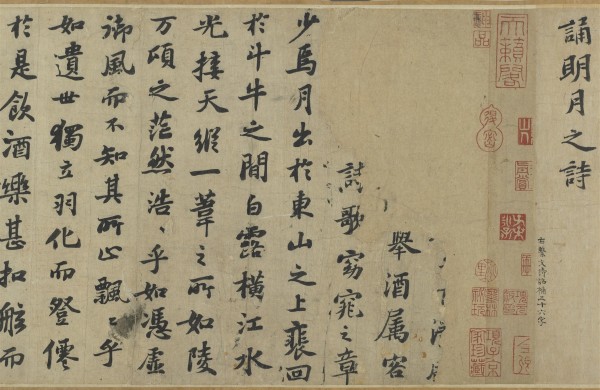 誦明月之詩
天籟閣
項子京家珍藏
舉酒属客
歌窈窕之章
少焉月出於東山之上裵回
於斗牛之間白露橫江水
光接天縱一葦之所如陵
万頃之茫然浩〻乎如馮虛
御風而不知其所止飄〻乎
如遺世獨立羽化而登僊
於是飲酒樂甚扣舷而